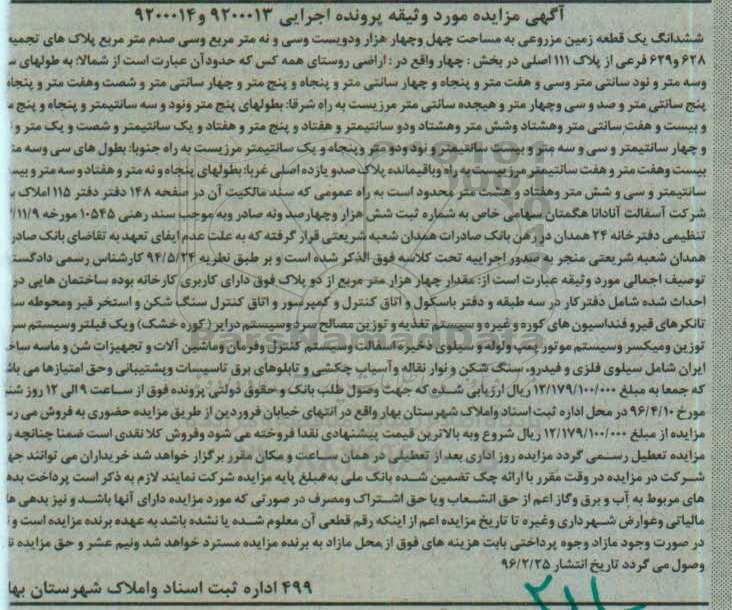 آگهی مزایده مورد وثیقه پرونده اجرایی ۹۲۰۰۰۱۳ و ۹۲۰۰۰۱۴
ششدانگ یک قطعه زمین مزروعی به مساحت چهل وچهار هزار ودویست وسی و نه متر مربع وسی صدم متر مربع پلاک های تجمیع
۶۲۸ و ۶۲۹ فرعی از پلاک ۱۱۱ اصلی در بخش : چهار واقع در : اراضی روستای همه کس که حدود آن عبارت است از شمالا: به طولهای
وسه متر و نود سانتی متر وسی و هفت متر و پنجاه و چهار سانتی متر و پنجاه و پنج متر و چهار سانتی متر و شصت وهفت متر و پنجاه
پنج سانتی متر و صد و سی وچهار متر و هیجده سانتی متر مرزیست به راه شرقا: بطولهای پنج متر ونود و سه سانتیمتر و پنجاه و پنج
و بیست و هفت سانتی متر وهشتاد وشش متر وهشتاد ودو سانتیمتر و هفتاد و پنج متر و هفتاد و یک سانتیمتر و شصت و یک متر و
و چهار سانتیمتر و سی و سه متر و بیست سانتیمتر و نود ودو متر وپنجاه و یک سانتیمتر مرزیست به راه جنوبا: بطول های سی وسه
بیست وهفت متر و هفت سانتیمتر مرزیست به راه وباقیمانده پلاک صدو یازده اصلی غربا: بطولهای پنجاه و نه متر و هفتاد و سه متر و
سانتیمتر و سی و شش متر وهفتاد و هشت متر محدود است به راه عمومی که سند مالکیت آن در صفحه ۱۴۸ دفتر دفتر ۱۱۵ املاک
شرکت آسفالت آنادانا هگمتان سهامی خاص به شماره ثبت شش هزار وچهارصد ونه صادر وبه موجب سند رهنی ۱۰۵۴۵ مورخه ۱۱/۹
تنظیمی دفترخانه ۲۴ همدان در رهن بانک صادرات همدان شعبه شریعتی قرار گرفته که به علت عدم ایفای تعهد به تقاضای بانک صادر
همدان شعبه شریعتی منجر به صدور اجراییه تحت کلاسه فوق الذکر شده است و بر طبق نظریه ۹۴/۵/۲۴ کارشناس رسمی دادگستر
توصیف اجمالی مورد وثیقه عبارت است از: مقدار چهار هزار متر مربع از دو پلاک فوق دارای کاربری کارخانه بوده ساختمان هایی در
احداث شده شامل دفتر کار در سه طبقه و دفتر باسکول و اتاق کنترل و کمپرسور و اتاق کنترل سنگ شکن و استخر قیر ومحوطه
تانکرهای قیرو فنداسیون های کوره و غیره و سیستم تغذیه و توزین مصالح سرد وسیستم درایر ( کوره خشک) ویک فیلتر وسیستم
توزین ومیکسر وسیستم موتور پمپ ولوله و سیلوی ذخیره اسفالت وسیستم کنترل وفرمان وماشین آلات و تجهیزات شن و ماسه
ایران شامل سیلوی فلزی و فیدرو، سنگ شکن و نوار نقاله وآسیاب چکشی و تابلوهای برق تاسیسات وپشتیبانی وحق امتیازها می
که جمعا به مبلغ ۱۲/۱۷۹/۱۰۰/۰۰۰ ریال ارزیابی شده که جهت وصول طلب بانک و حقوق دولتی پرونده فوق از ساعت ۹ الی ۱۲ روز
مورخ ۹۶/۴/۱۰ در محل اداره ثبت اسناد واملاک شهرستان بهار واقع در انتهای خیابان فروردین از طریق مزایده حضوری به فروش می
مزایده از مبلغ ۱۲/۱۷۹/۱۰۰/۰۰۰ ریال شروع وبه بالاترین قیمت پیشنهادی نقدا فروخته می شود وفروش کلا نقدی است ضمنا چنانچه
مزایده تعطیل رسمی گردد مزایده روز اداری بعد از تعطیلی در همان ساعت و مکان مقرر برگزار خواهد شد خریداران می توانند
شرکت در مزایده در وقت مقرر با ارائه چک تضمین شده بانک ملی به مبلغ پایه مزایده شرکت نمایند لازم به ذکر است پرداخت
های مربوط به آب و برق وگاز اعم از حق انشعاب ویا حق اشتراک ومصرف در صورتی که مورد مزایده دارای آنها باشد و نیز بدهی
مالیاتی وعوارض شهرداری وغیره تا تاریخ مزایده اعم از اینکه رقم قطعی آن معلوم شده یا نشده باشد به عهده برنده مزایده است و
در صورت وجود مازاد وجوه پرداختی بابت هزینه های فوق از محل مازاد به برنده مزایده مسترد خواهد شد ونیم عشر و حق مزایده
وصول می گردد تاریخ انتشار ۹۶/۲/۲۵
۴۹۹ اداره ثبت اسناد واملاک شهرستان بها